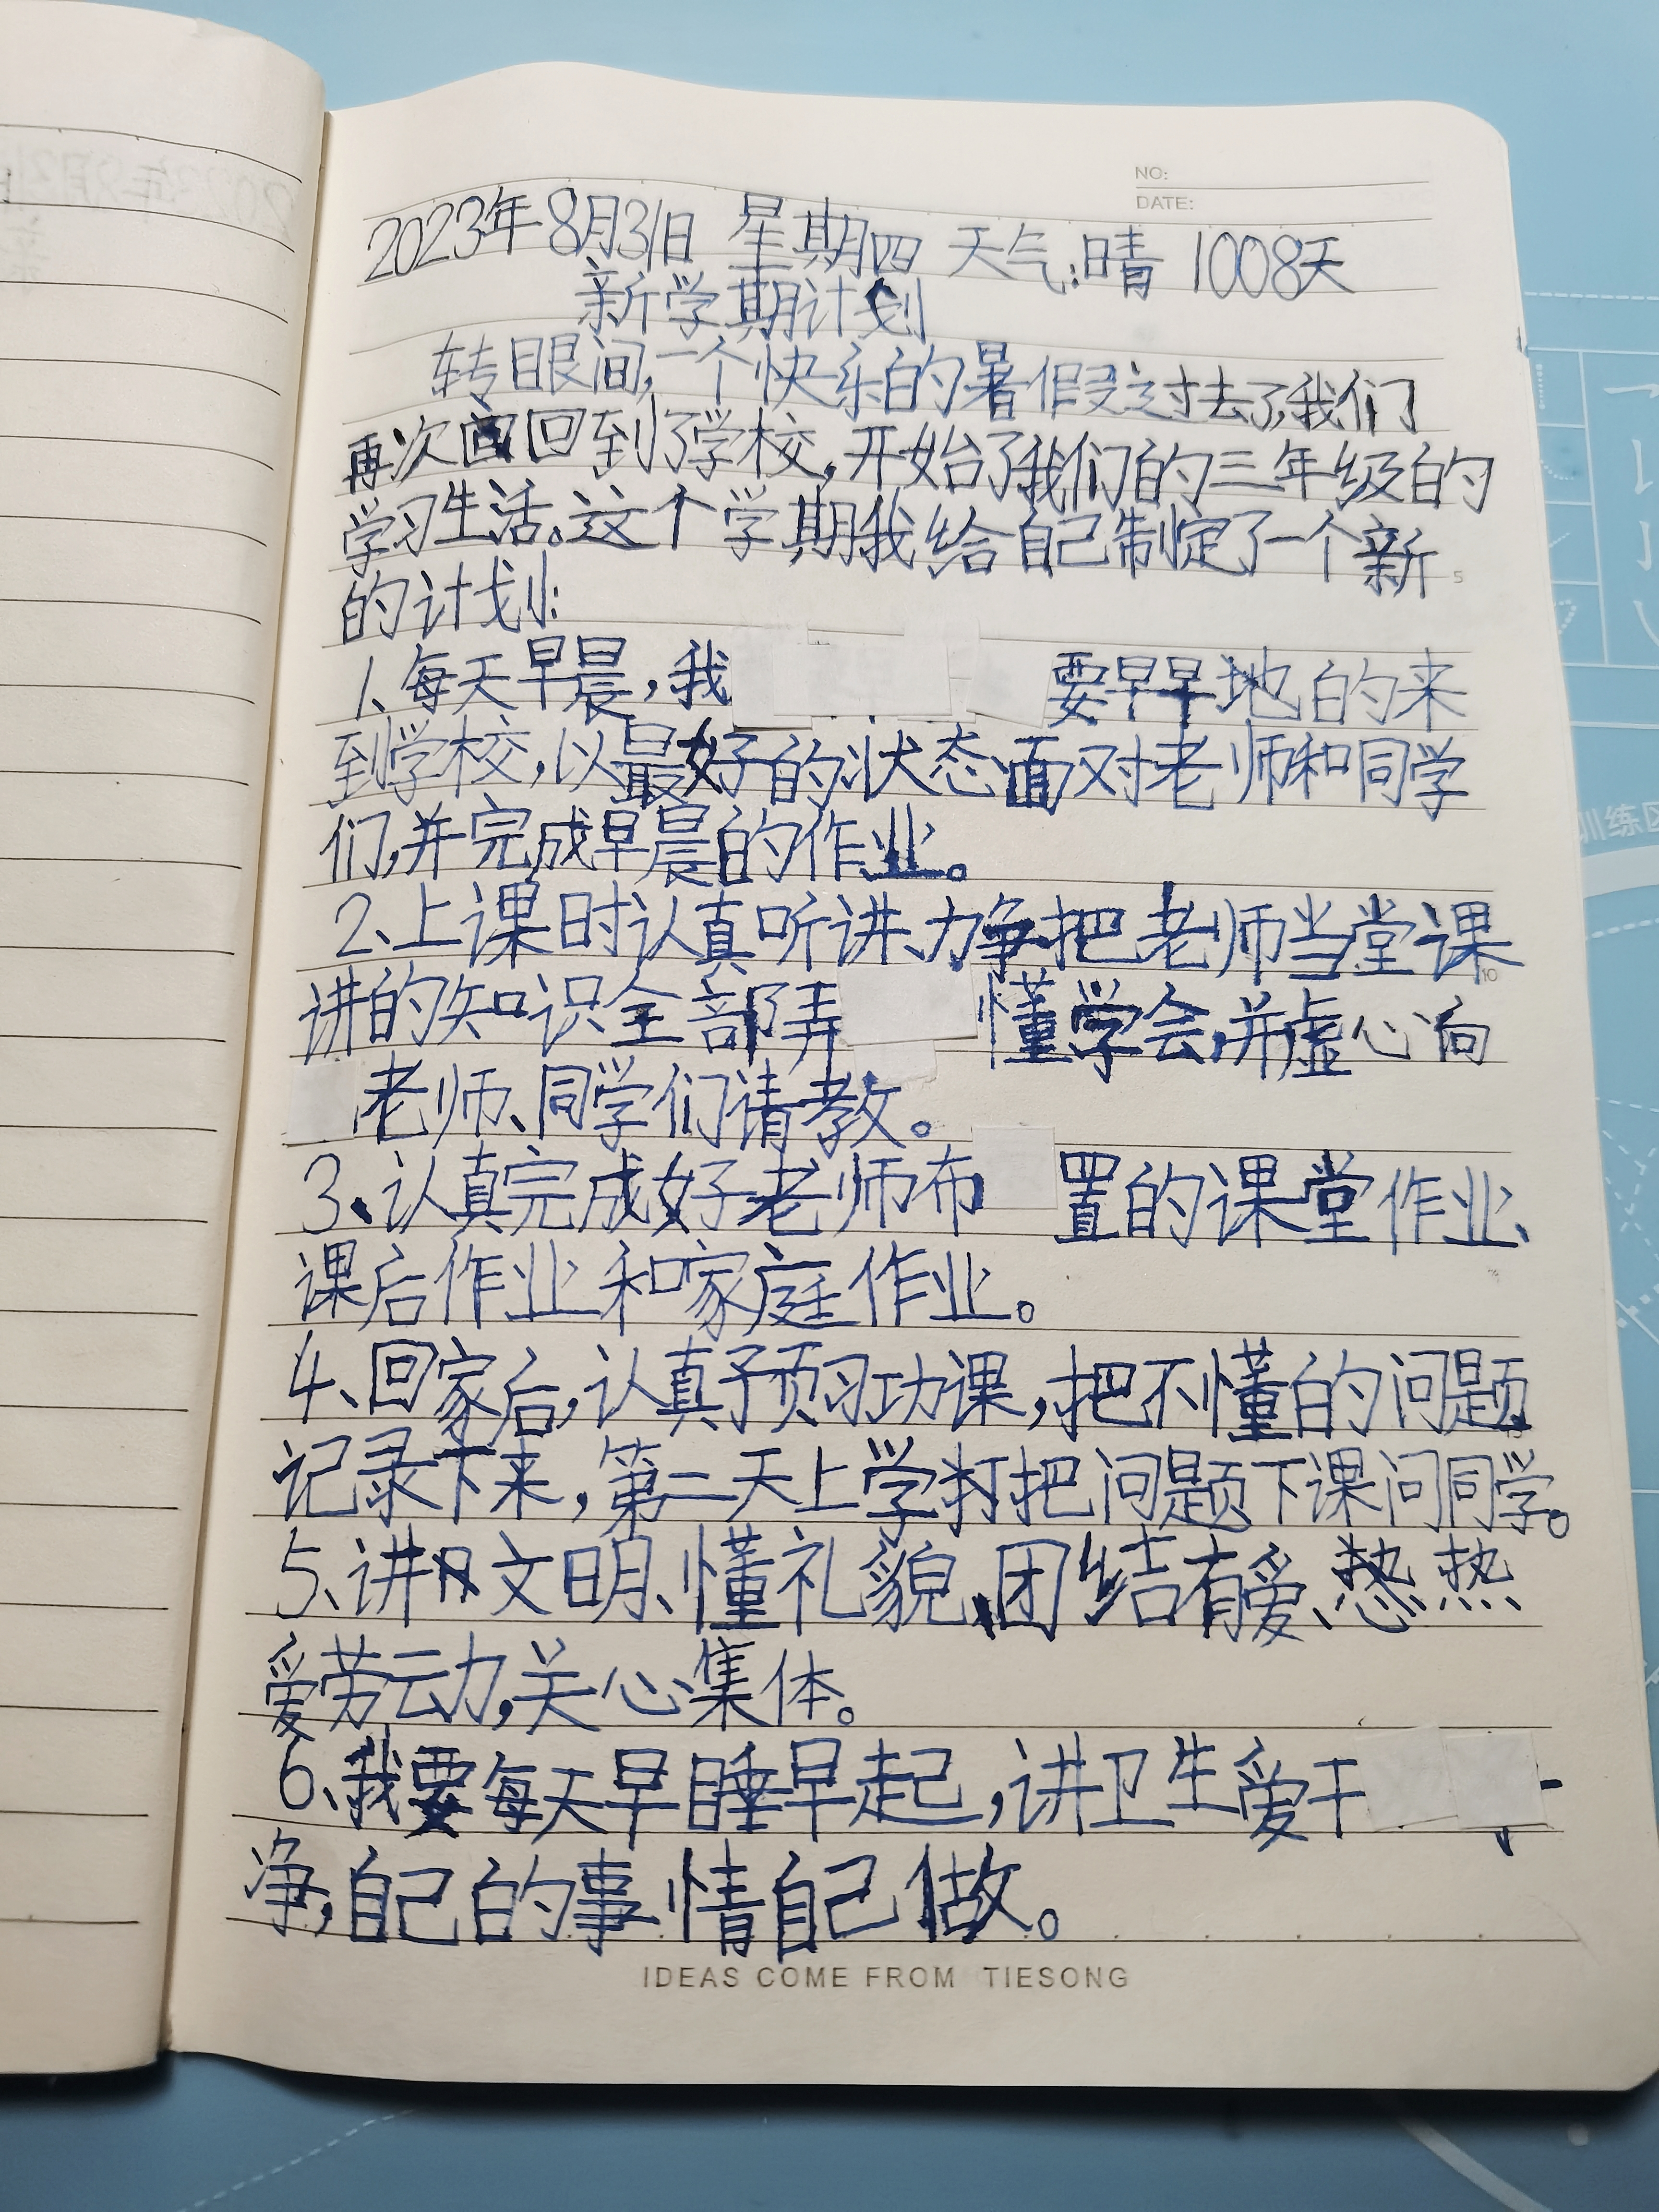 NO:
DATE:
2023年8月31日 星期四 天气:晴 1008天
新学期计划
转目眼间,一个快乐的暑假过去了,我们
再次回到了学校,开始了我们的三年级的
学习生活。这个学期我给自己制定了一个新
的计划:
1、每天早晨,我要早早地的来
到学校,以最好的状态面对老师和同学
们,并完成早晨的作业。
2、上课时认真听讲、力争把老师当堂课
讲的知识全部弄懂学会,并虚心向
老师、同学们请教。
3、认真完成好老师布置的课堂作业、
课后作业和家庭作业。
4、回家后,认真预习功课,把不懂的问题
记录下来,第二天上学把问题下课问同学。
5、讲文明、懂礼貌、团结有爱、热
爱劳动,关心集体。
6、我要每天早睡早起,讲卫生爱干
净,自己的事情自己做。
5
10
IDEAS COME FROM TIESONG
训练区